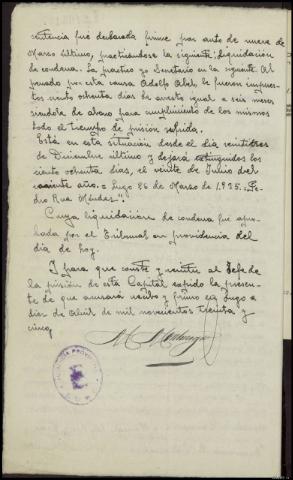 sentencia fué declarada firme por auto de nueve de
Marzo último, practicándose la siguiente: liquidación
de condena. La practico yo Secretario en la siguiente. Al
penado por esta causa Adolfo Abel, le fueron impues-
tos ciento ochenta días de arresto igual a seis meses
siéndole de abono para cumplimiento de los mismos
todo el tiempo de prisión sufrida.
Está en esta situación desde el día veintitres
de Diciembre último y dejará extinguidos los
ciento ochenta días, el veinte de Junio del
corriente año.= Lugo 26 de Marzo de 1.935. = Pe-
dro Rua Méndez".
Cuya liquidación de condena fué apro-
bada por el Tribunal en providencia del
día de hoy.
Y para que conste y remitir al Jefe de
la prisión de esta Capital expido la presen-
te de que acusará recibo y firmo en Lugo a
dos de Abril de mil novecientos treinta y
cinco
AUDIENCIA PROVINCIAL